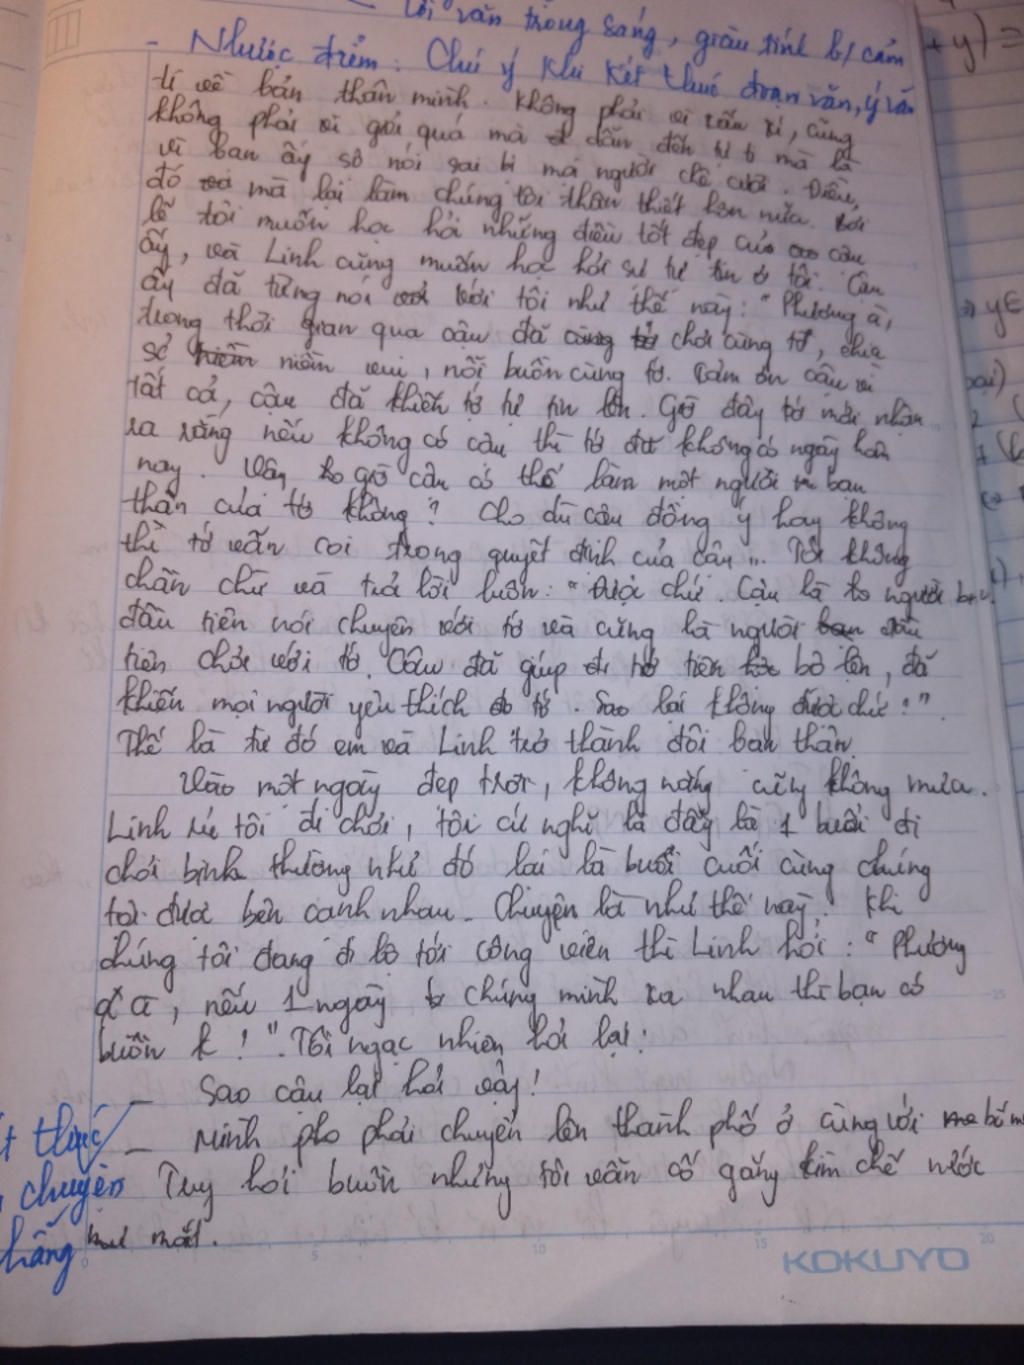 Lời văn trong sáng, giàu tính b/ cảm
- Nhược điểm: Chú ý khi kết thúc đoạn văn, ý văn
ti về bản thân mình. Không phải vì xấu xí, cũng
không phải vì gói quá mà dẫn đến tự ti mà là
vì bạn ấy sợ nói sai bị mọi người chê cười. Điều
đó mà lại làm chúng tôi thân thiết hơn nữa. Bởi
lẽ tôi muốn học hỏi những điều tốt đẹp của cậu
ấy, và Linh cũng muốn học hỏi sự tự tin ở tôi. Cậu
ấy đã từng nói với tôi như thế này: "Phương à,
trong thời gian qua cậu đã chơi cùng tớ, chia
sẻ niềm vui, nỗi buồn cùng tớ. Cảm ơn cậu vì
tất cả, cậu đã khiến tớ tự tin lên. Giờ đây tớ mới nhận
ra rằng nếu không có cậu thì tớ không có ngày hôm
nay. Vậy giờ cậu có thể làm một người bạn
thân của tớ không? Cho dù cậu đồng ý hay không
thì tớ vẫn coi trọng quyết định của cậu". Tôi không
chần chừ và trả lời luôn: "Được chứ. Cậu là người bạn
đầu tiên nói chuyện với tớ và cũng là người đầu
tiên chơi với tớ. Cậu đã giúp tớ tiến bộ lên, đã
khiến mọi người yêu thích tớ. Sao lại không được chứ!".
Thế là từ đó em và Linh trở thành đôi bạn thân.
Vào một ngày đẹp trời, không nắng cũng không mưa.
Linh rủ tôi đi chơi, tôi cứ nghĩ là đấy là 1 buổi đi
chơi bình thường như đó lại là buổi cuối cùng chúng
tôi được bên cạnh nhau. Chuyện là như thế này: Khi
chúng tôi đang đi bộ tới công viên thì Linh hỏi: "Phương
à, nếu 1 ngày chúng mình xa nhau thì bạn có
buồn k!". Tôi ngạc nhiên hỏi lại:
- Sao cậu lại hỏi vậy!
thúc - Mình phải chuyển lên thành phố ở cùng với bố mẹ
chuyện Tuy hơi buồn nhưng tôi vẫn cố gắng kìm chế nước
mắt.
KOKUYO